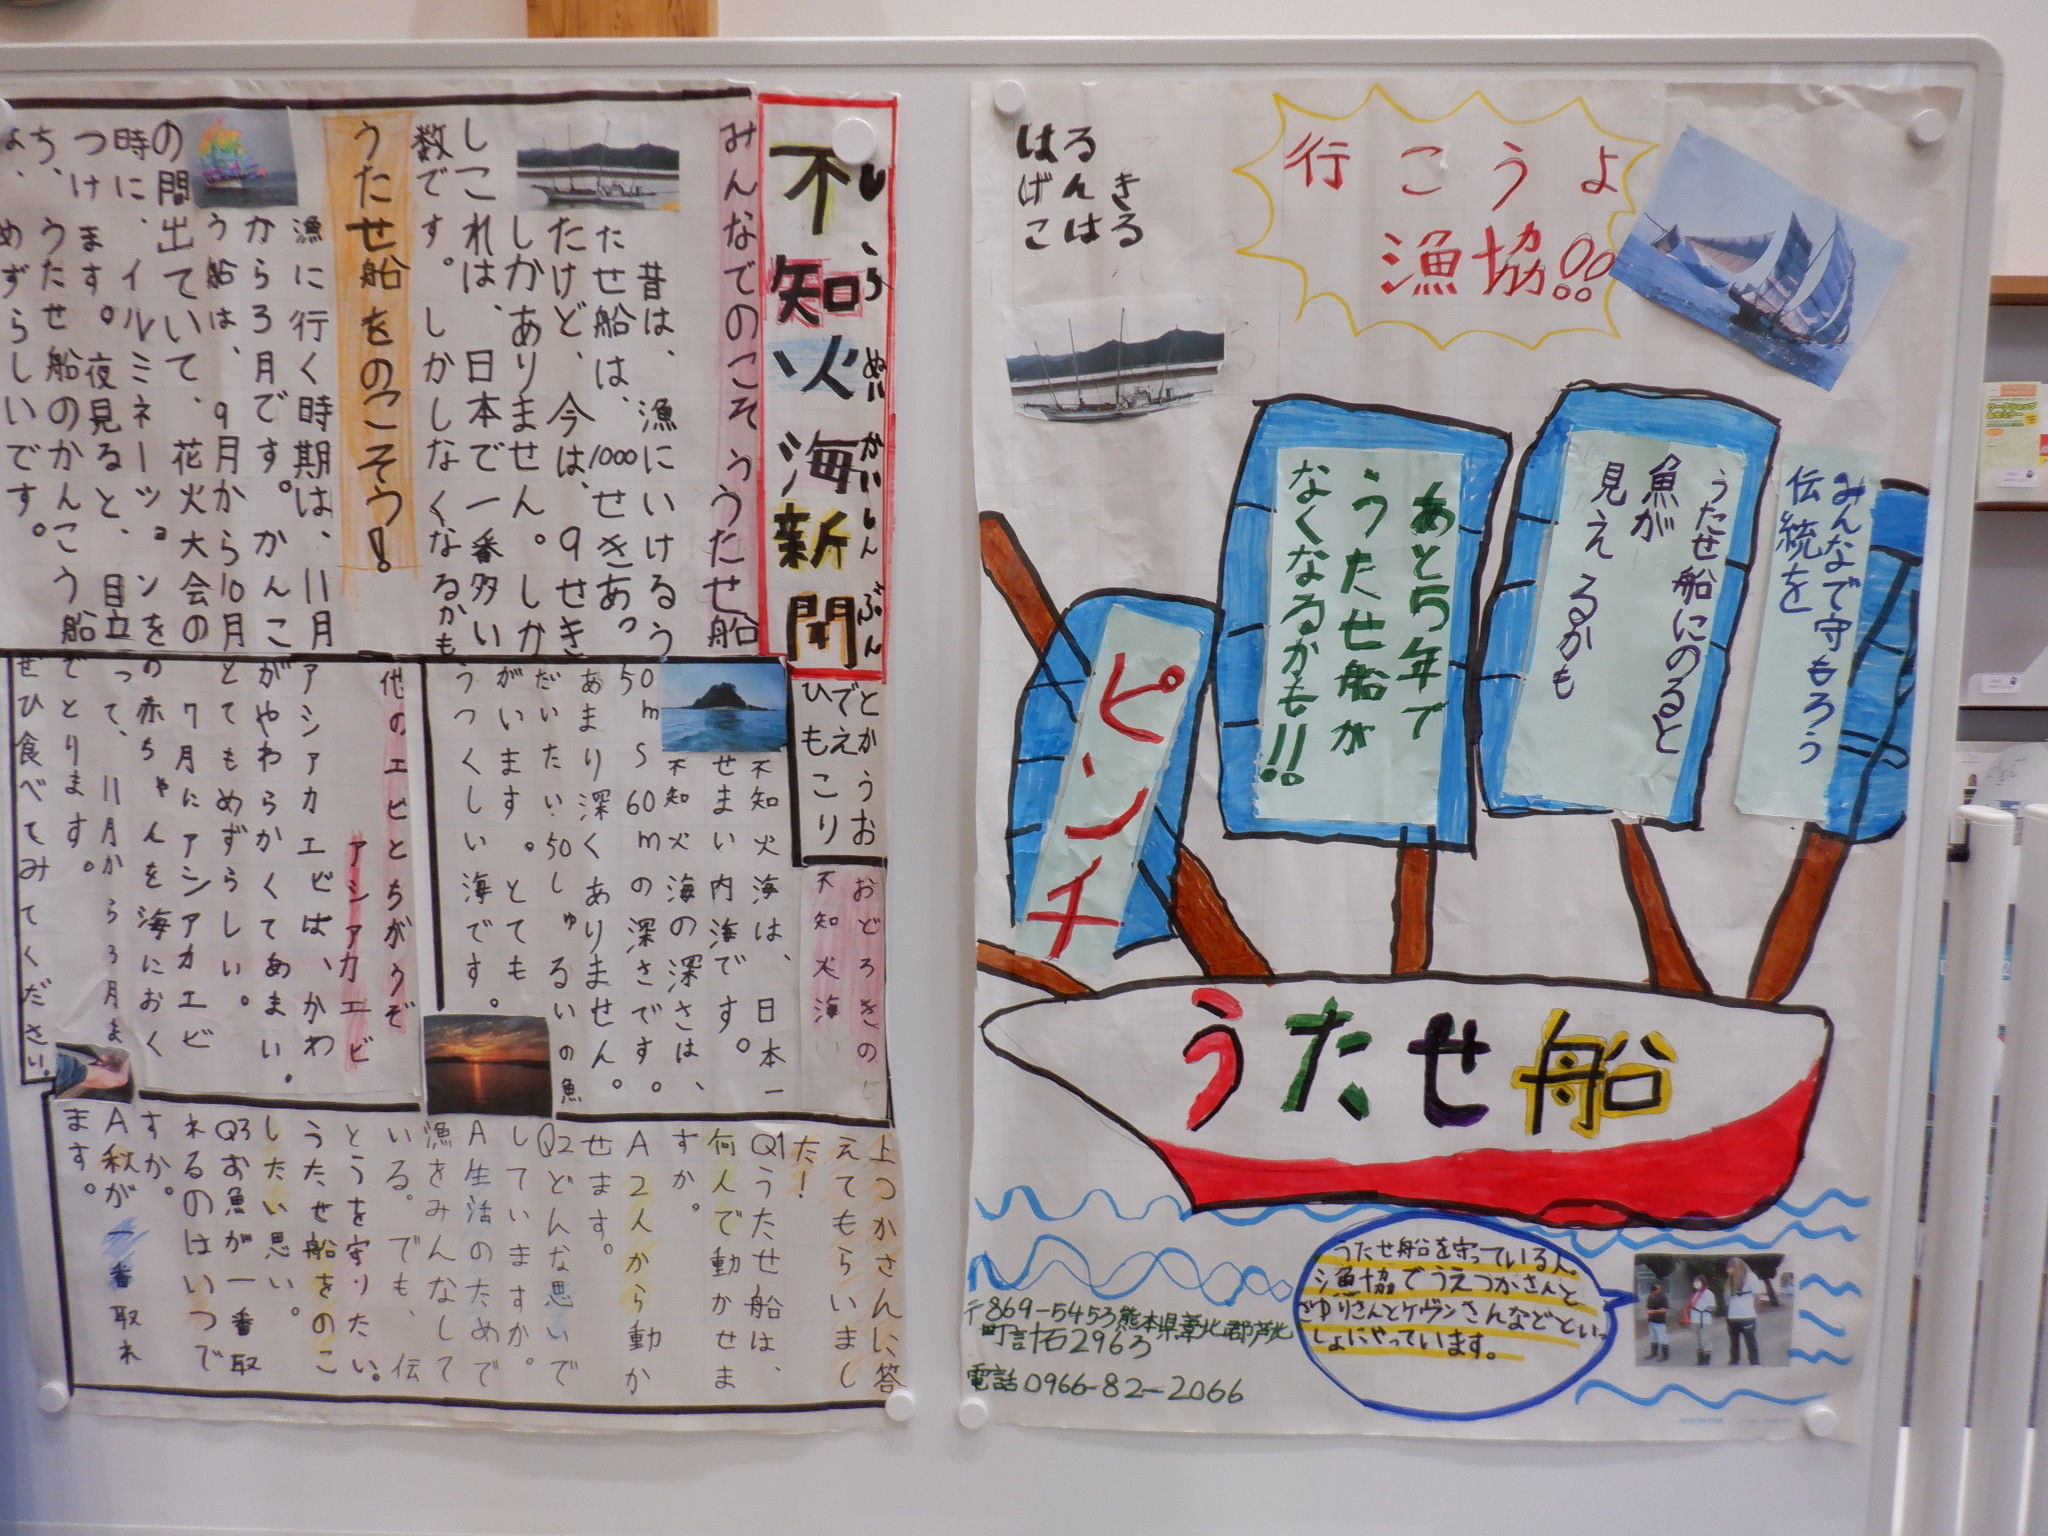 不知火海新聞
しらぬいかいしんぶん
とかうお
でえ
ひもこり
みんなでのこそううたせ船
昔は、漁にいけるう
たせ船は、1000せきあっ
たけど、今は、9せき
しかありません。しか
しこれは、日本で一番多い
数です。しかしなくなるかも
うたせ船をのこそう!
漁に行く時期は、11月
から3月です。かんこ
う船は、9月から10月
の間出ていて、花火大会の
時に、イルミネーションを
つけます。夜見ると、目立
ち、うたせ船のかんこう船
めずらしいです。
おどろきの
不知火海
不知火海は、日本一
せまい内海です。
不知火海の深さは、
50m~60mの深さです。
あまり深くありません。
だいたい50しゅるいの魚
がいます。とても
うつくしい海です。
他のエビとちがうぞ
アシアカエビ
アシアカエビは、かわ
がやわらかくてあまい。
とてもめずらしい。
7月にアシアカエビ
の赤ちゃんを海におく
って、11月から3月ま
でとります。
ぜひ食べてみてください。
上つかさんに答
えてもらいまし
た!
Q1うたせ船は、
何人で動かせま
すか。
A2人から動か
せます。
Q2どんな思いで
していますか。
A生活のためで
漁をみんなして
いる。でも、伝
とうを守りたい。
うたせ船をのこ
したい思い。
Q3お魚が一番取
れるのはいつで
すか。
A秋が一番取れ
ます。
はる
げんき
こはる
行こうよ
漁協!!
みんなで守もろう
伝統を
うたせ船にのると
魚が
見えるかも
あと5年で
うたせ船が
なくなるかも!!
ピンチ
うたせ船
うたせ船を守っている人
漁協でうえつかさんと
さゆりさんとケヴンさんなどといっ
しょにやっています。
〒869-5453熊本県葦北郡芦北
町計石2963
電話0966-82-2066